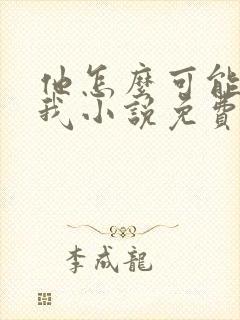 他怎麼可能
我小說免費
李成龍